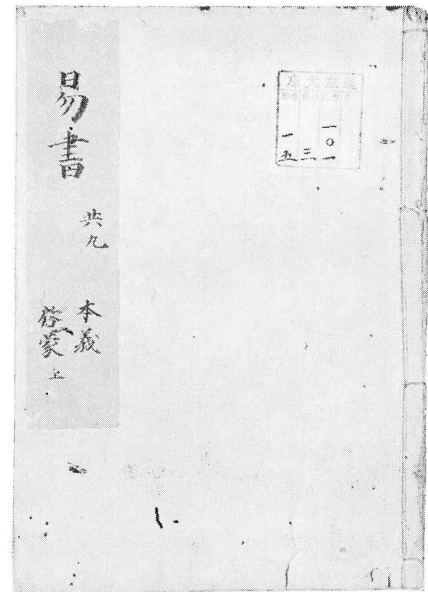 易書
共九
本義
啓蒙 上
一〇一
三
一五